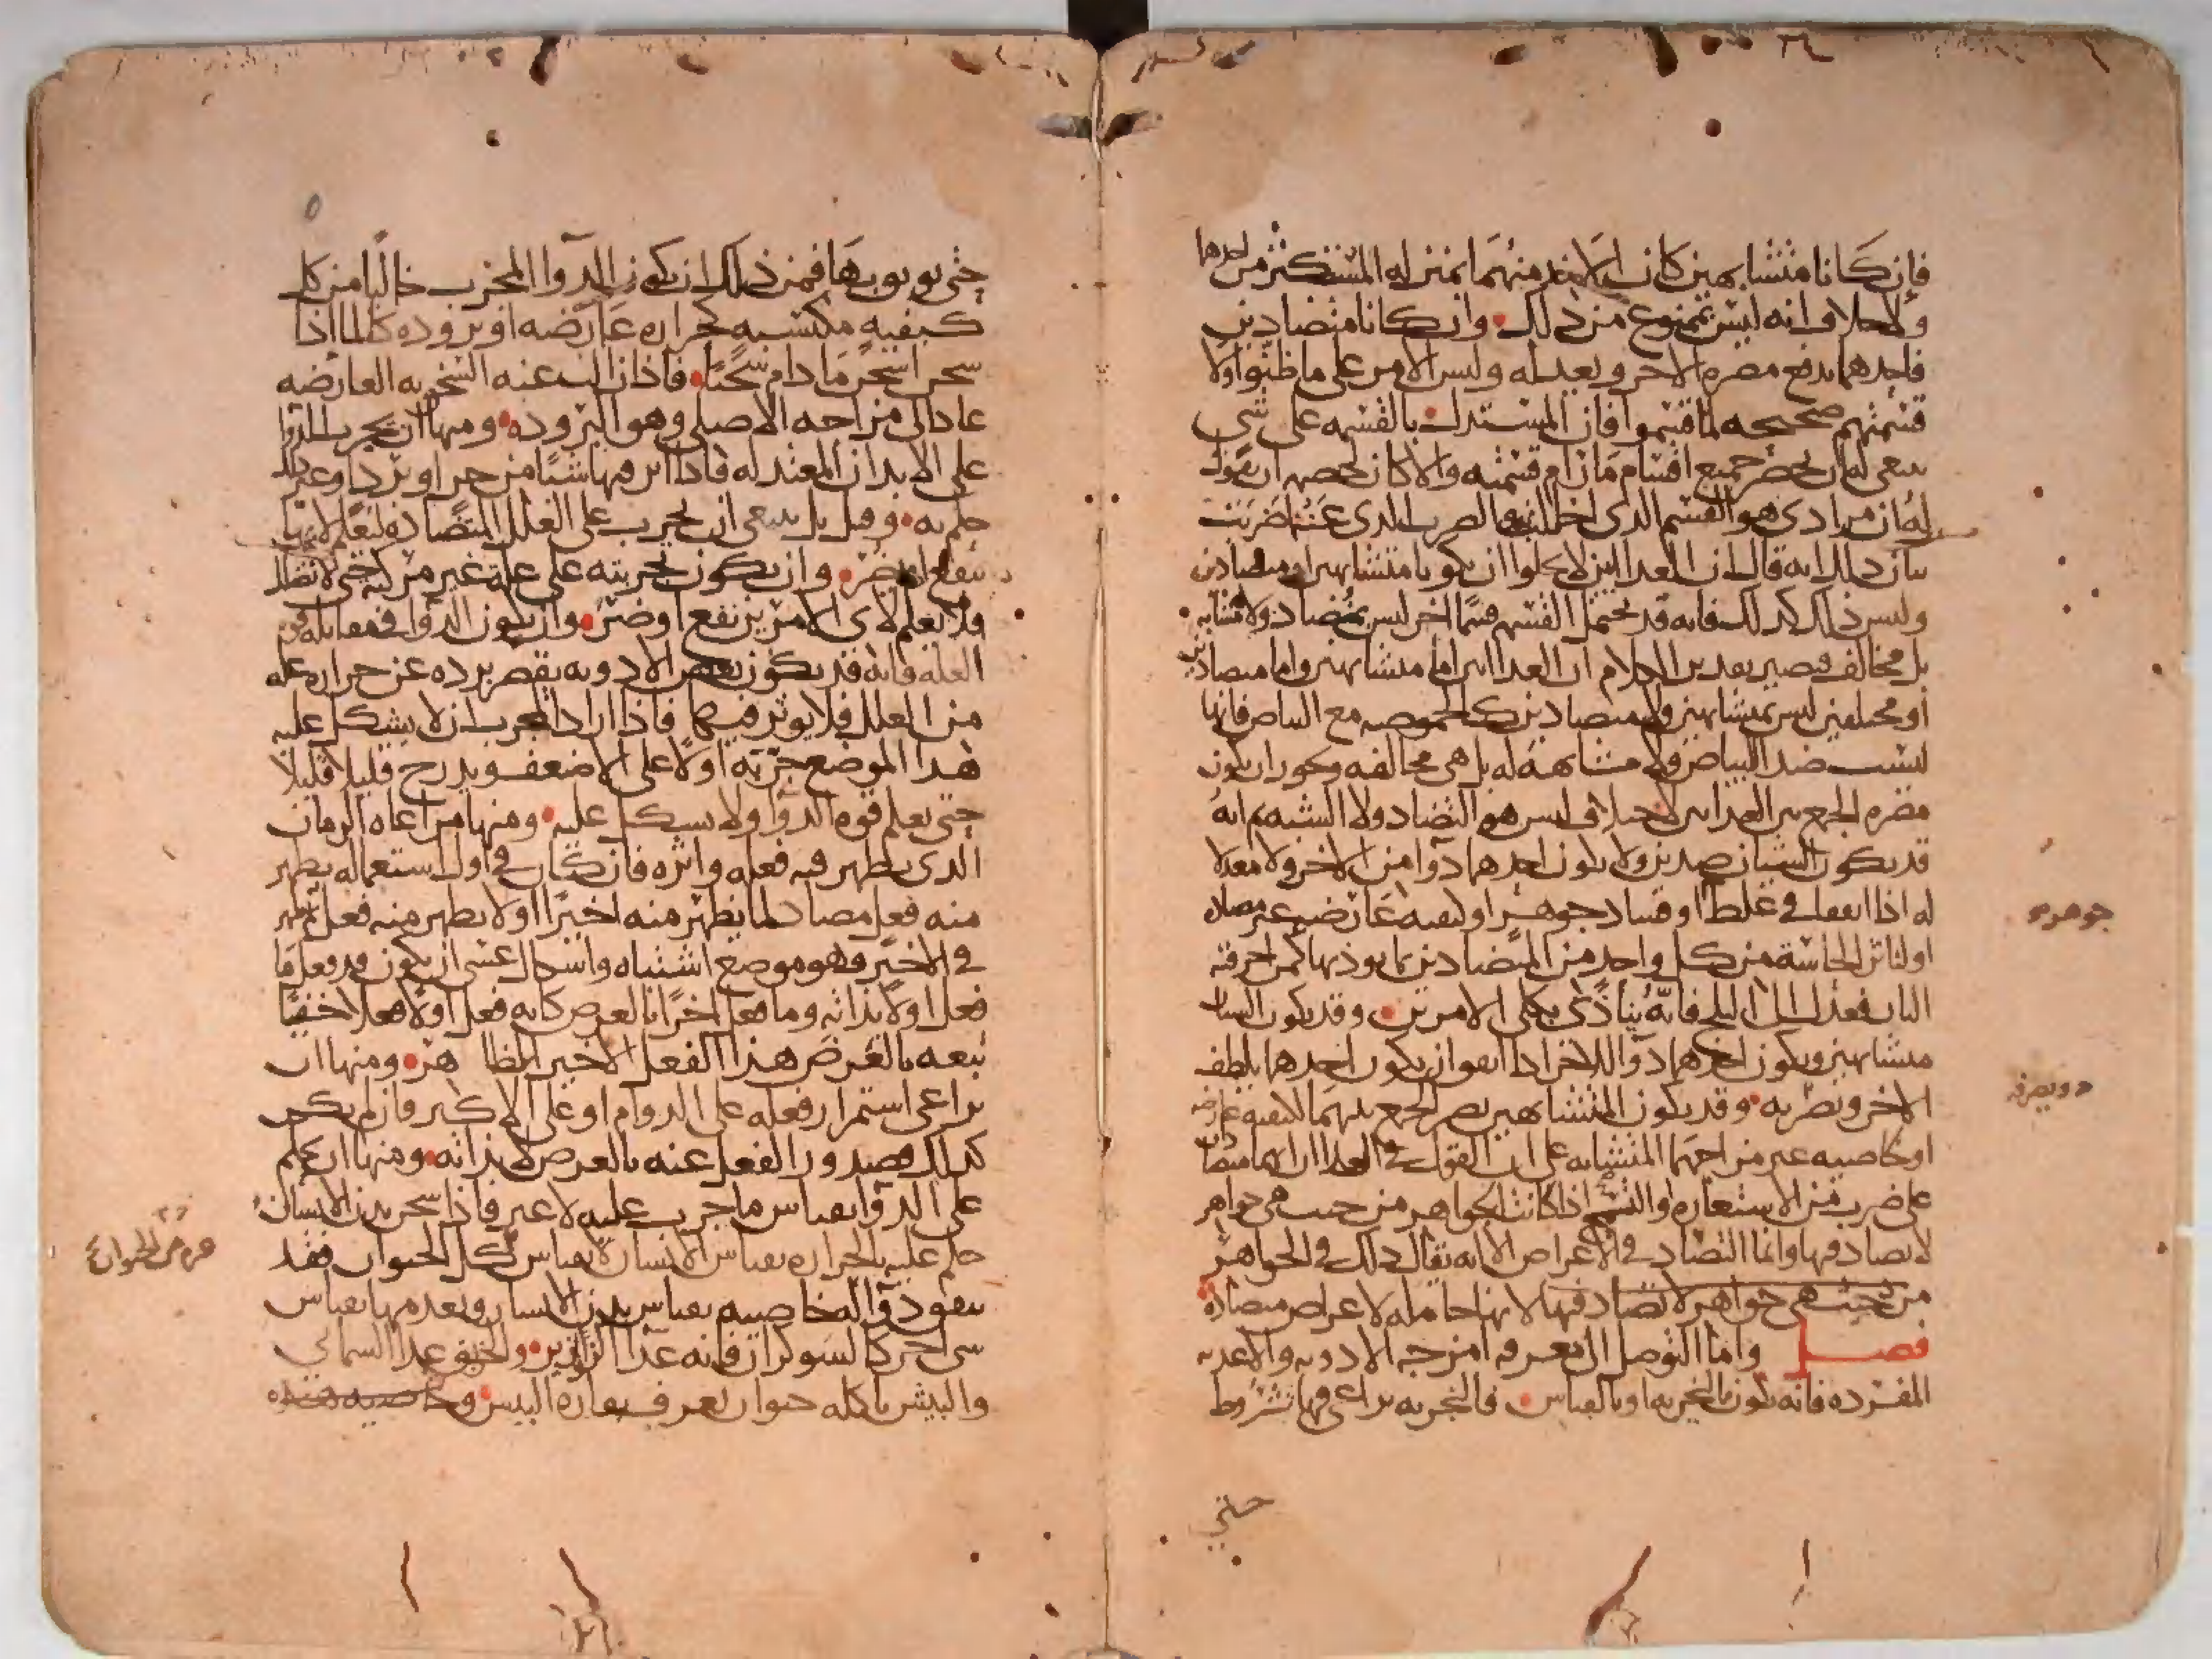 فإن كانا متشابهين كان الاخذ منهما بمنزله المستكثر من احدهما
ولا خلاف انه ليس بممنوع من ذلك وان كانا متضادين
فاحدهما يدفع مضره الاخر ويعدله وليس الامر على ما ظنوا ولا
قسمتهم صحيحه لما قسموا فان المستدل بالقسمه على شي
ينبغي له ان يحضر جميع اقسام ما رام قسمته والا كان لخصمه ان يقول
له ان مرادي هو القسم الذي اخللت به والضرب الذي عنه اضربت
بيان ذلك انه قال ان الغداين لا يخلوا ان يكونا متشابهين او متضادين
وليس ذلك كذلك فانه قد تحتمل القسمه قسما اخر ليس بمتضاد ولا متشابه
بل مخالف فيصير تقدير الكلام ان الغداين اما متشابهين واما متضادين
او مختلفين ليس بمتشابهين ولا متضادين كالحموضه مع البياض فانها
ليست ضد البياض ولا مشابهه له بل هي مخالفه ويجوز ان يكون
مضره الجمع بين الغداين لاختلاف ليس هو التضاد ولا الشبه ثم انه
قد يكون الشيان ضدين ولا يكون احدهما دوا من الاخر ولا معدلا
له اذا اتفقا في غلظ او فساد جوهر او كيفيه عارضيه غير مضاده
او لتاثر الحاسة من كل واحد من المتضادين بما يوذيها كمن احرقته
النار فعدل الى الثلج فانه يتأذى بكلى الامرين وقد يكون الشيان
متشابهين ويكون احدهما دوا للاخر اذا اتفق ان يكون احدهما يلطف
الاخر ونضر به وقد يكون المتشابهين يضر الجمع بينهما لكيفيه عارضه
او خاصيه غير مزاجهما المتشابه على ان القول في الغداان انهما متضادان
على ضرب من الاستعاره والتسمح اذا كانت الجواهر من حيث هي جواهر
لا تضاد فيها وانما التضاد في الاعراض الا انه يقال ذلك في الجواهر
من حيث هي جواهر لا تضاد فيها لانها حامله لاعراض متضادة
فصل واما التوصل الى معرفه امزجه الادويه والاغديه
المفرده فانه يكون بالتجربه او بالقياس فالتجربه يراعى فيها شروط
جوهره
حتى
حتى يوثق بها فمن ذلك ان يكون الدوا المجرب خاليا من كل
كيفيه مكتسبه كحراره عارضه او بروده كالما اذا
سخن اسخن ما دام سخنا فاذا زالت عنه السخونه العارضه
عاد الى مزاجه الاصلي وهو البروده ومنها ان يجرب الدوا
على الابدان المعتدله فاذا اثر فيها شيا من حر او برد او غير ذلك
حكم به وقيل بل ينبغي ان يجرب على العلل المتضاده ليعلم لايها
ينفع او يضر وان يكون تجربته على علة غير مركبه حتى لا تضلل
ولا يعلم لاي الامرين نفع او ضر وان يكون الدوا في مقابله قوه
العله فانه قد يكون بعض الادويه يقصر برده عن حراره عله
من العلل فلا يوثر فيها فاذا اراد المجرب ان لا يشكل عليه
هذا الموضع جربه اولا على الاضعف ويدرج قليلا قليلا
حتى يعلم قوه الدوا ولا يشكل عليه ومنها مراعاه الزمان
الذي يظهر فيه فعله واثره فان كان في اول استعماله يظهر
منه فعل مضاد لما يظهر منه اخيرا او لا يظهر منه فعل ثم يظهر
في الاخير فهو موضع اشتباه واشكال عسى ان يكون قد فعل ما
فعل اولا بذاته وما فعل اخرا بالعرض كانه فعل اولا فعلا خفيا
تبعه بالعرض هذا الفعل الاخير الظاهر ومنها ان
يراعى استمرار فعله على الدوام او على الاكثر فان لم يكن
كذلك فصدور الفعل عنه بالعرض لا بذاته ومنها ان يحكم
على الدوا بقياس ما جرب عليه لا غير فاذا سخن بدن الانسان
حكم عليه بالحراره بقياس الانسان لا بقياس كل الحيوان فقد
يتفق دوا له خاصيه بقياس بدن الانسان ويعدمها بقياس
شي اخر كالشوكران فانه غدا الزرازير والخربق غدا السماني
والبيش ياكله حيوان يعرف بفاره البيش